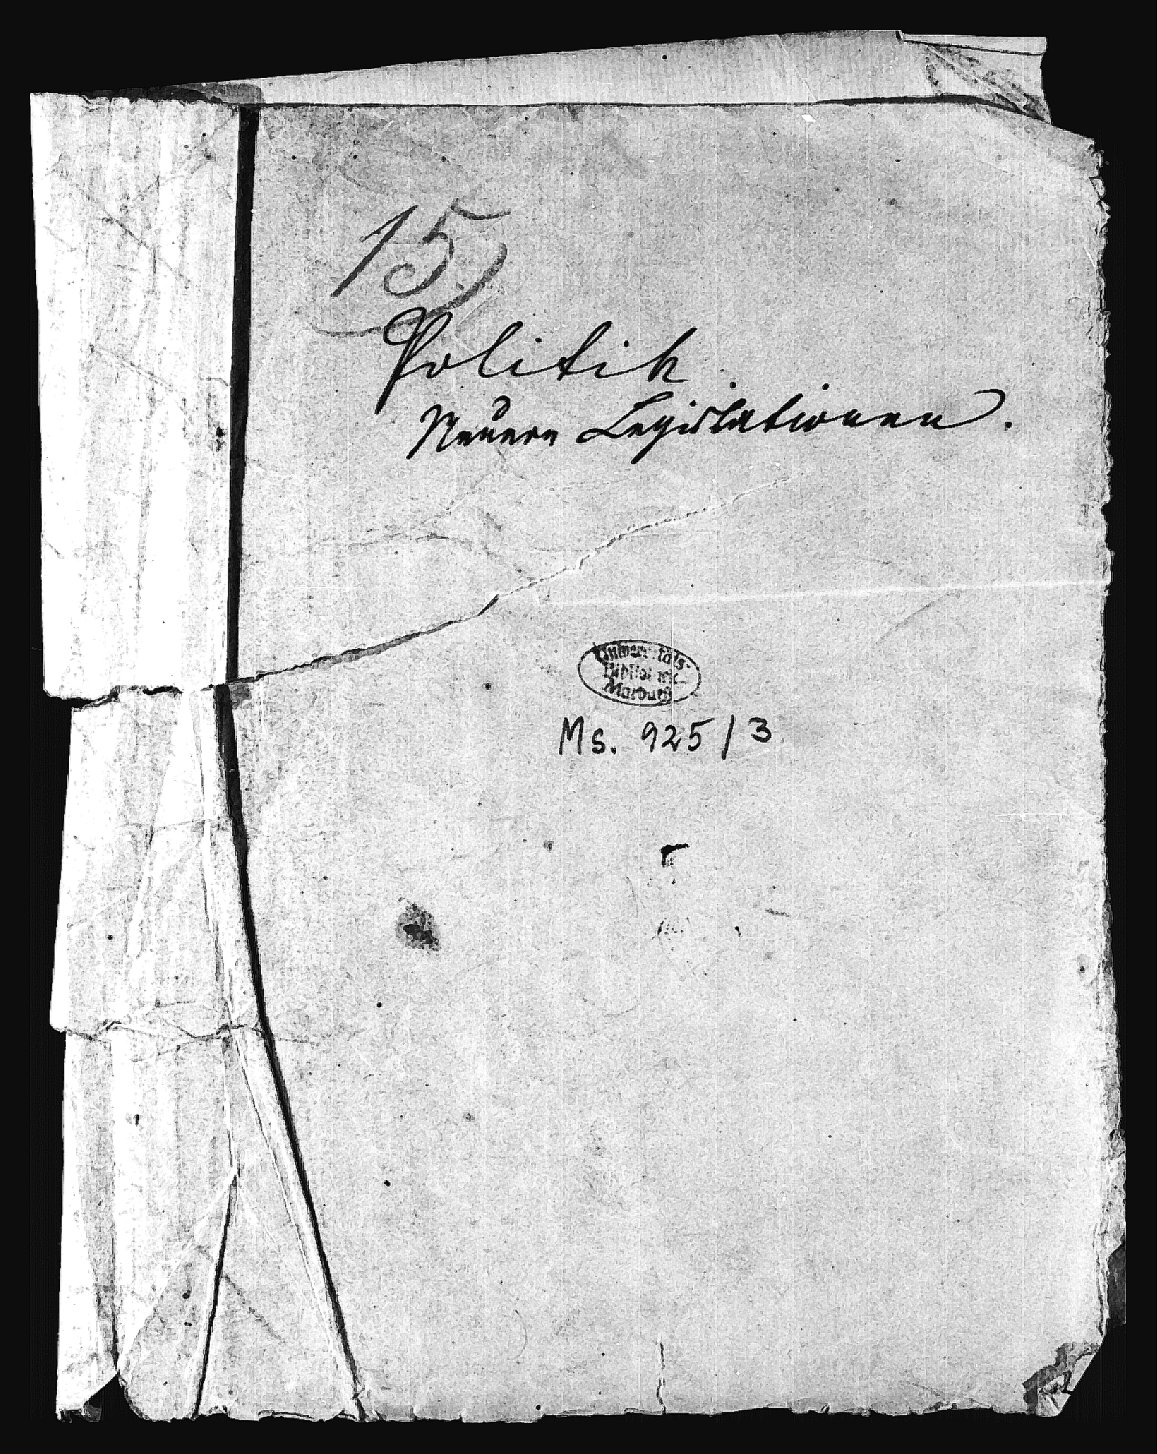 15)
Politik
Neuere Legislationen.
Universitäts-
Bibliothek
Marburg
Ms. 925/3